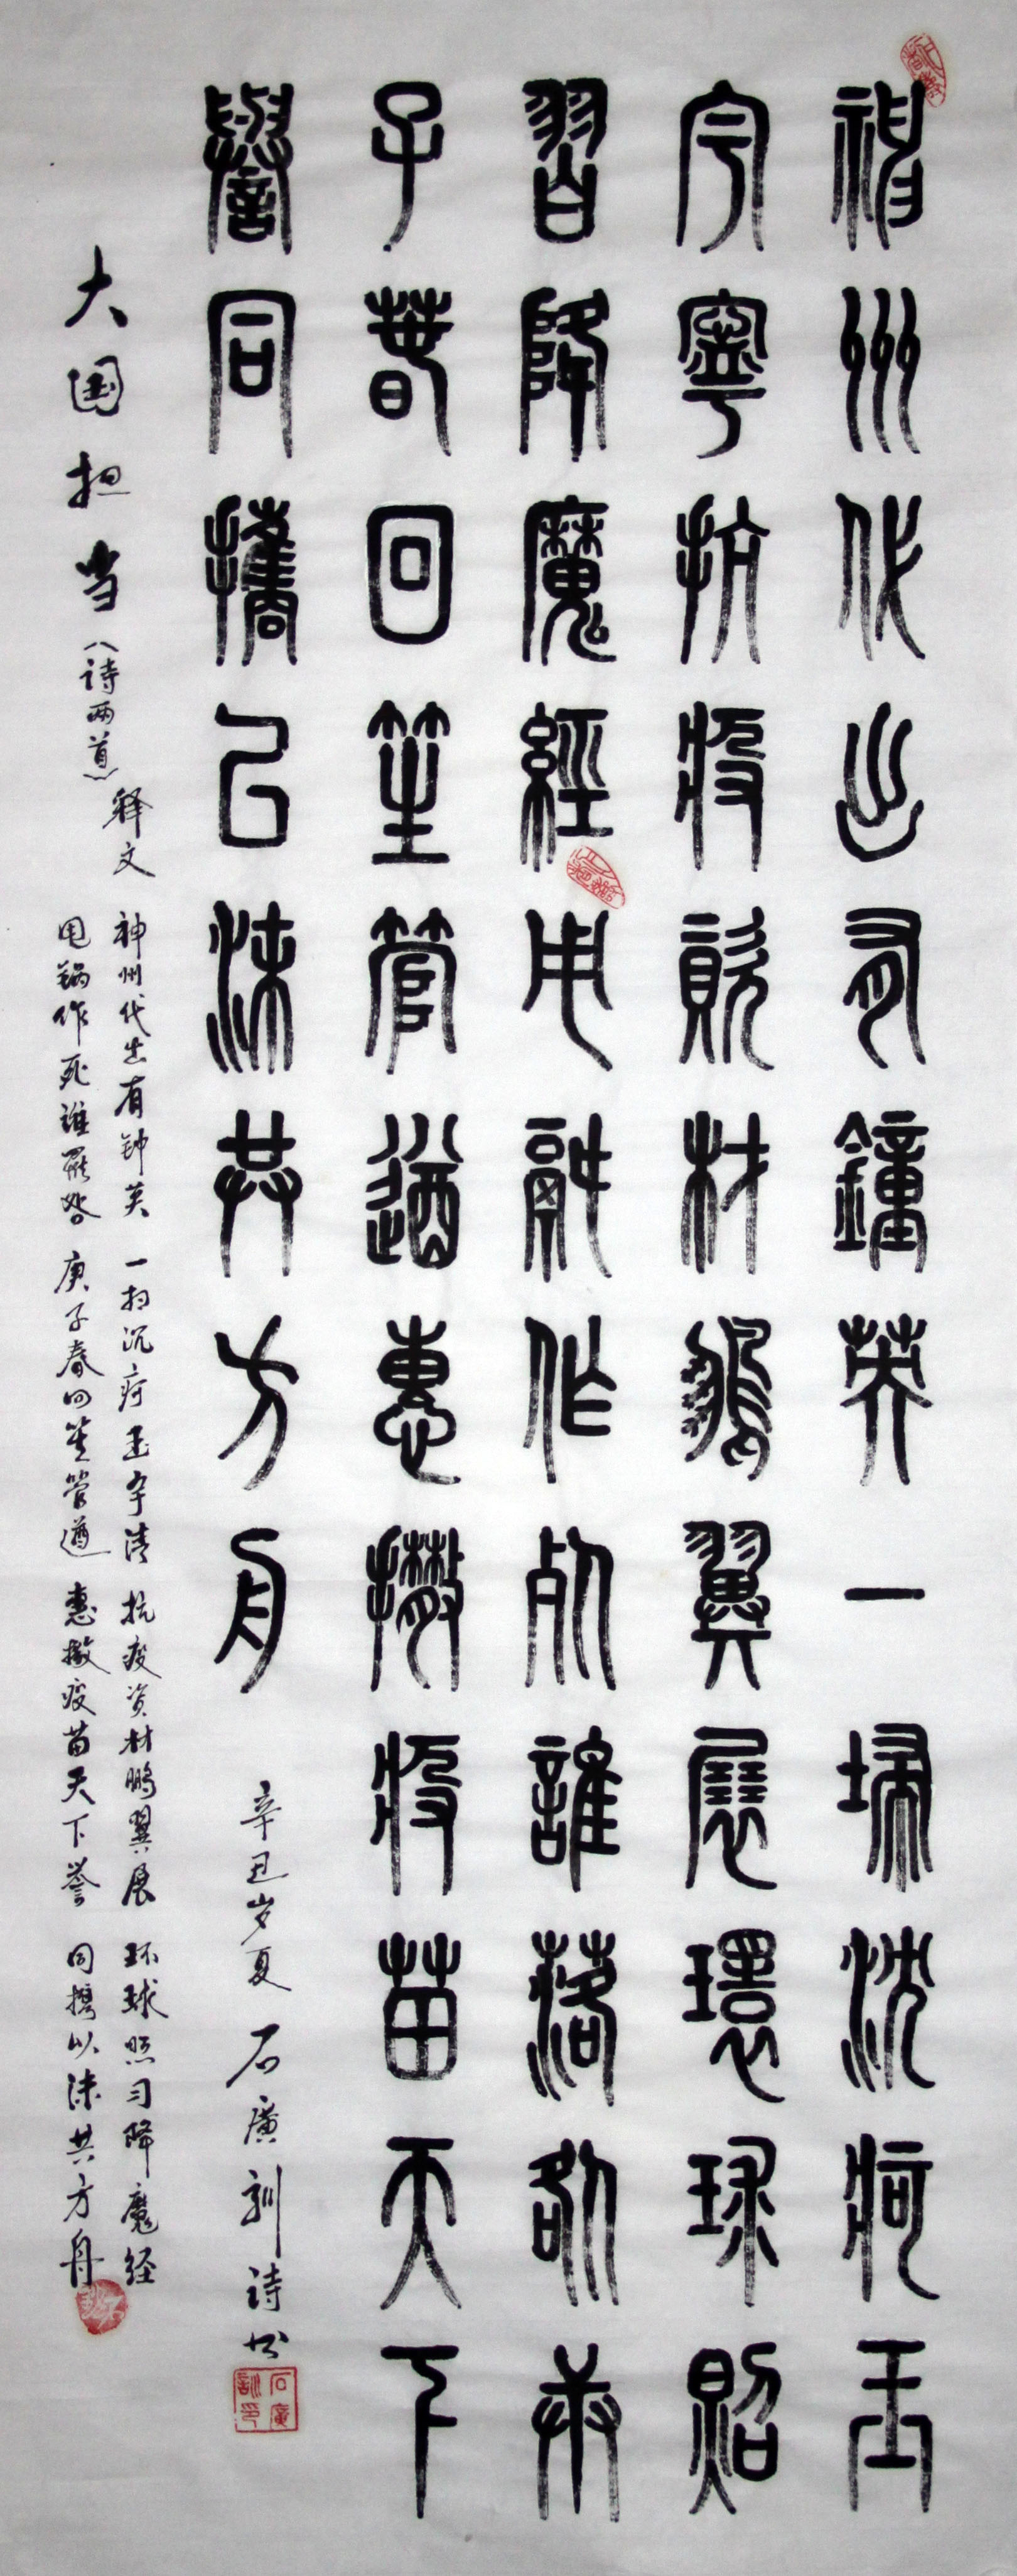 神州代出有鐘英一埽沈痾玉
宇寧抗疫資材鵬翼展環球照
習降魔經甩鍋作死誰庚
子春回笙管遒惠撒疫苗天下
譽同攜以沫共方舟
辛丑岁夏 石廣訓詩书
石廣訓印
大国担当(诗两首)
释文
神州代出有钟英 一扫沉疴玉宇清 抗疫资材鹏翼展 环球照习降魔经
甩锅作死谁罹咎 庚子春回笙管遒 惠撒疫苗天下誉 同携以沫共方舟